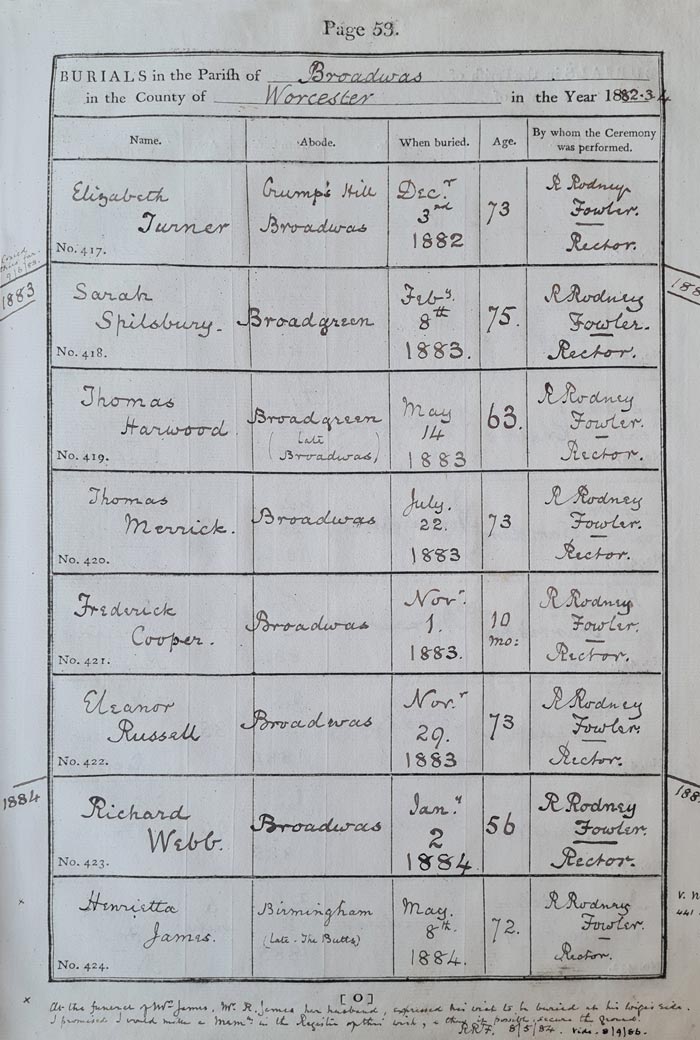 Page 53.
BURIALS in the Parish of Broadwas
in the County of Worcester in the Year 1882.3.4
Name. Abode. When buried. Age. By whom the Ceremony was performed.
Elizabeth Crump's Hill Dec.r R Rodney
Turner Broadwas 3rd 73 Fowler.
No. 417. 1882 Rector.
1883
Sarah Feby. R Rodney
Spilsbury. Broadgreen 8th 75. Fowler.
No. 418. 1883. Rector.
Thomas May R Rodney
Harwood Broadgreen 14 63. Fowler.
No. 419. (Late Broadwas,) 1883 Rector.
Thomas July. R Rodney
Merrick. Broadwas 22. 73 Fowler.
No. 420. 1883 Rector.
Frederick Novr. R Rodney
Cooper. Broadwas 1. 10 mo: Fowler.
No. 421. 1883. Rector.
Eleanor Nov.r R Rodney
Russell Broadwas 29. 73 Fowler.
No. 422. 1883 Rector.
1884
Richard Jan.y R Rodney
Webb. Broadwas 2 56 Fowler.
No. 423. 1884 Rector.
Henrietta Birmingham May. R Rodney
James. (Late. The Butts) 8th. 72. Fowler.
No. 424. 1884. Rector.
[ O ]
x At the funeral of Mrs James, Mr. R. James her husband, expressed his wish to be buried at his wife's side.
I promised I would make a Memm in the Register of this wish, & if possible, secure the ground.
R R F. 8/5/84. vide. 8/9/86.